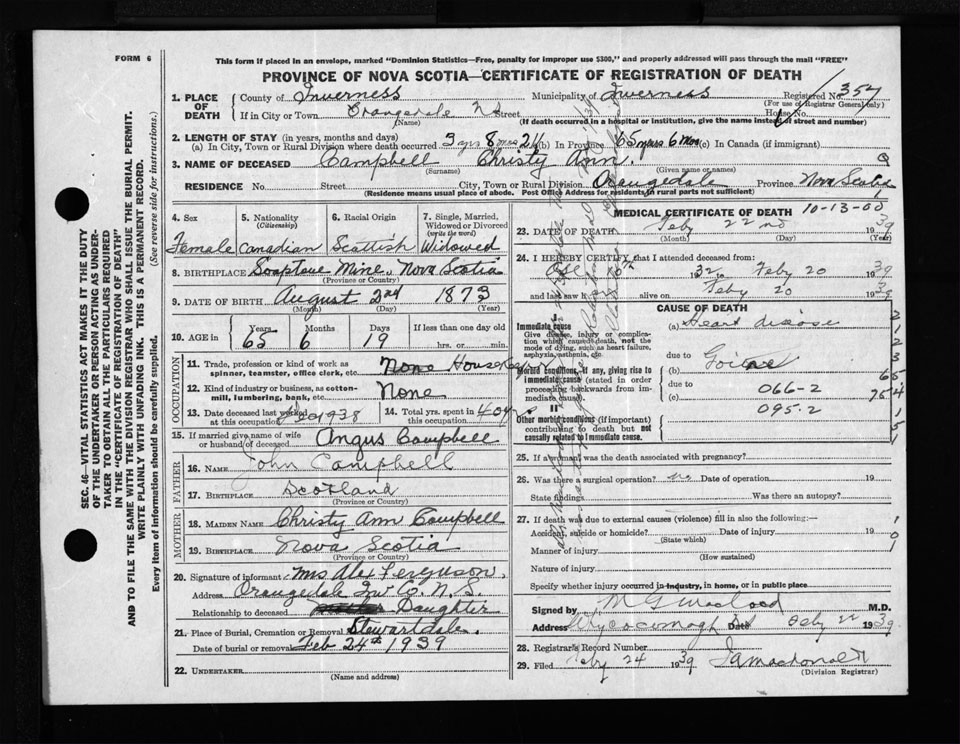 FORM 6
This form if placed in an envelope, marked "Dominion Statistics—Free, penalty for improper use $300," and properly addressed will pass through the mail "FREE"
PROVINCE OF NOVA SCOTIA—CERTIFICATE OF REGISTRATION OF DEATH
1. PLACE OF DEATH
County of Inverness Municipality of Inverness Registered No. 357
(For use of Registrar General only)
If in City or Town Orangedale N S Street House No.
(Name) (If death occurred in a hospital or institution, give the name instead of street and number)
2. LENGTH OF STAY (in years, months and days)
(a) In City, Town or Rural Division where death occurred 3 yrs 8 mos 21 (b) In Province 65 years 6 mos (c) In Canada (if immigrant)
3. NAME OF DECEASED Campbell Christy Ann.
(Surname) (Given name or names)
RESIDENCE No. Street City, Town or Rural Division Orangedale Province Nova Scotia
(Residence means usual place of abode. Post Office Address for residents in rural parts not sufficient)
4. Sex
Female
5. Nationality
(Citizenship)
Canadian
6. Racial Origin
Scottish
7. Single, Married, Widowed or Divorced
(write the word)
Widowed
8. BIRTHPLACE Soapstone Mine, Nova Scotia
(Province or Country)
9. DATE OF BIRTH August 2nd 1873
(Month) (Day) (Year)
10. AGE in
Years Months Days If less than one day old
65 6 19 hrs. or min.
OCCUPATION
11. Trade, profession or kind of work as spinner, teamster, office clerk, etc. None
12. Kind of industry or business, as cotton-mill, lumbering, bank, etc. None
13. Date deceased last worked at this occupation 1938
14. Total yrs. spent in this occupation 40 yrs
15. If married give name of wife or husband of deceased Angus Campbell
FATHER
16. NAME John Campbell
17. BIRTHPLACE Scotland
(Province or Country)
MOTHER
18. MAIDEN NAME Christy Ann Campbell
19. BIRTHPLACE Nova Scotia
(Province or Country)
20. Signature of informant Mrs Alex Ferguson.
Address Orangedale Inv Co. N. S.
Relationship to deceased Daughter
21. Place of Burial, Cremation or Removal Stewartdale.
Date of burial or removal Feb 24th 1939
22. UNDERTAKER
(Name and address)
MEDICAL CERTIFICATE OF DEATH 10-13-00
23. DATE OF DEATH Feby 22nd 1939
(Month) (Day) (Year)
24. I HEREBY CERTIFY that I attended deceased from:
10th 1932 to Feby 20 1939
and last saw h alive on Feby 20 1939
CAUSE OF DEATH
Immediate cause
Give disease, injury or complication which caused death, not the mode of dying, such as heart failure, asphyxia, asthenia, etc
(a) Heart disease
due to
Morbid conditions, if any, giving rise to immediate cause (stated in order proceeding backwards from immediate cause).
(b) Goitre
due to
(c) 066-2
095-2
II
Other morbid conditions (if important) contributing to death but not causally related to immediate cause.
25. If a woman, was the death associated with pregnancy?
26. Was there a surgical operation? no Date of operation 19
State findings Was there an autopsy?
27. If death was due to external causes (violence) fill in also the following:—
Accident, suicide or homicide? Date of injury 19
(State which)
Manner of injury
(How sustained)
Nature of injury
Specify whether injury occurred in industry, in home, or in public place
Signed by M G Macleod M.D.
Address Whycocomagh Date Feby 22 1939
28. Registrar's Record Number
29. Filed Feby 24 1939
(Division Registrar)
SEC. 46—VITAL STATISTICS ACT MAKES IT THE DUTY
OF THE UNDERTAKER OR PERSON ACTING AS UNDER-
TAKER TO OBTAIN ALL THE PARTICULARS REQUIRED
IN THE "CERTIFICATE OF REGISTRATION OF DEATH"
AND TO FILE THE SAME WITH THE DIVISION REGISTRAR WHO SHALL ISSUE THE BURIAL PERMIT.
WRITE PLAINLY WITH UNFADING INK. THIS IS A PERMANENT RECORD.
Every item of information should be carefully supplied. (See reverse side for instructions.)